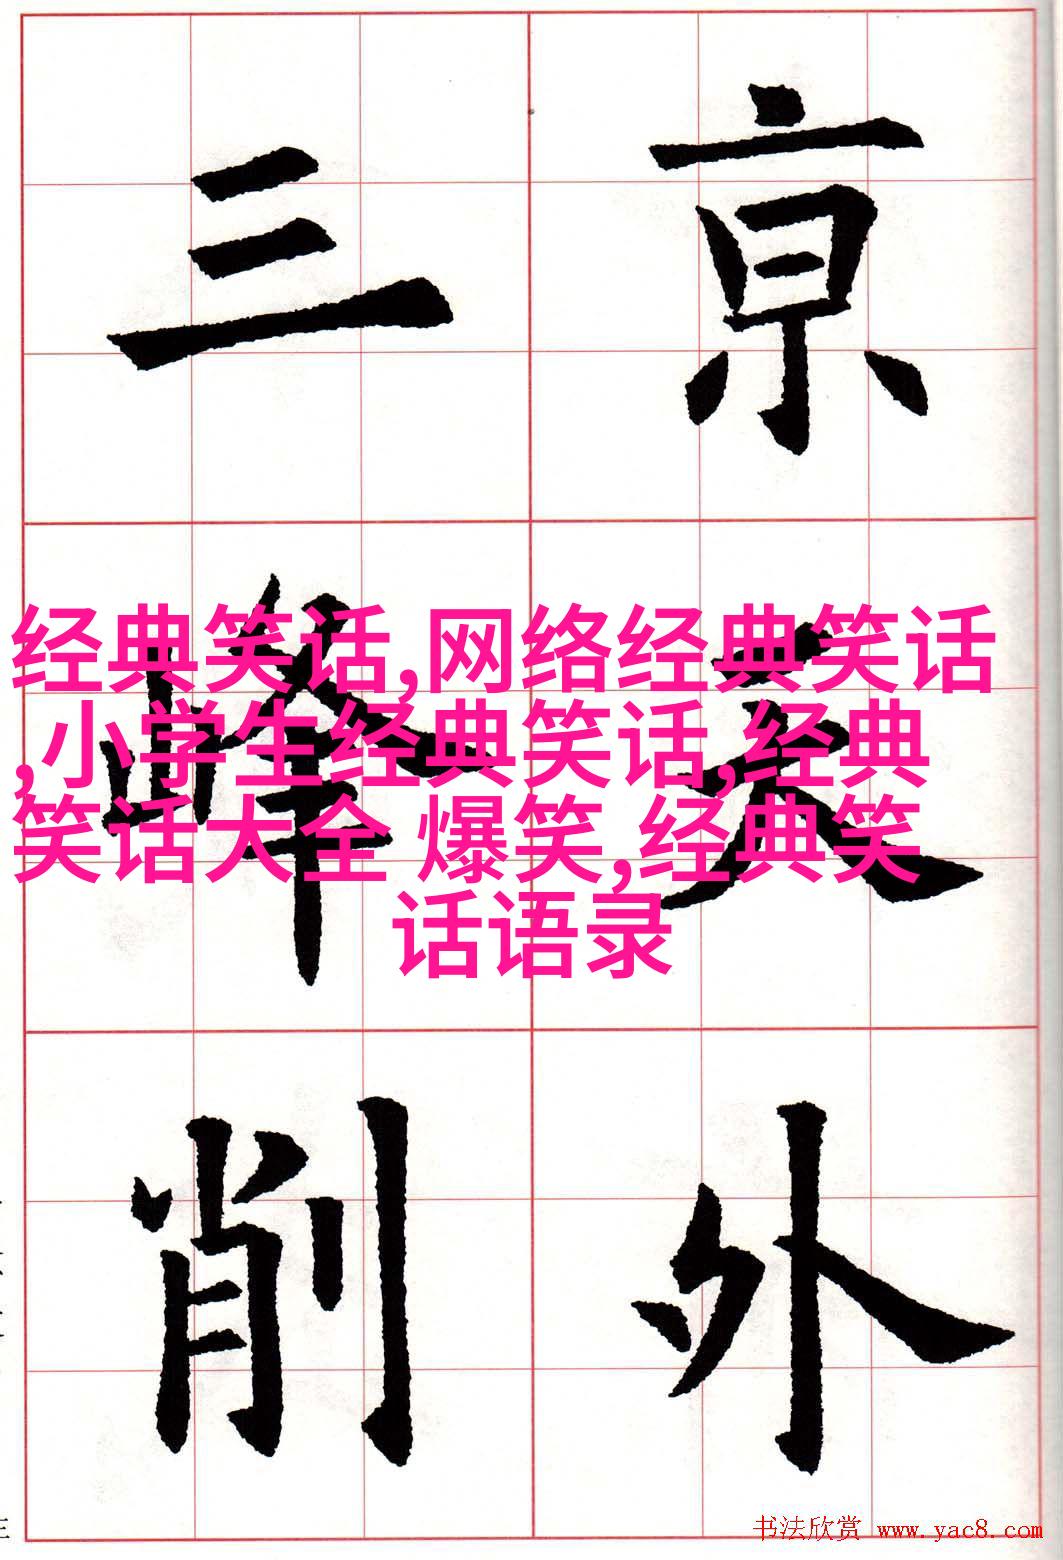 亰天外
三峰削
经典笑话,网络经典笑话
,小学生经典笑话,经典
笑话大全 爆笑,经典笑
话语录
书法欣赏 www.yac8.com